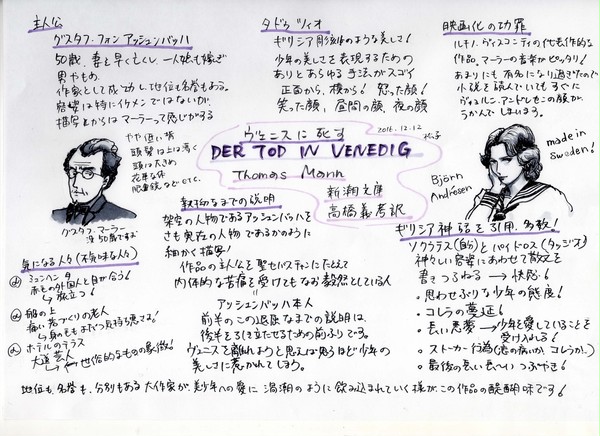 主人公
グスタフ・フォン アッシェンバッハ
50歳、妻を早く亡くし、一人娘も嫁ぎ
男やもめ。
作家として成功し地位も名誉もある。
容姿は特にイケメンではないが
描写からはマーラーって感じがする
やや低い背
頭髪は上は薄く
頭は大きめ
花車な体
眼鏡 などなどetc.
グスタフ・マーラー
没50歳ですが
気になる人々(不気味な人々)
ミュンヘンの
赤毛の外国人と目が合う!
→旅立つ!
船の上
痛い若づくりの老人
→身の毛もよだつ気持ち悪さよ!
ホテルのテラス
大道芸人
→世俗的なものの象徴!
タドゥツィオ
ギリシア彫刻のような美しさ!
少年の美しさを表現するための
ありとあらゆる手法がスゴイ
正面から、横から!怒った顔!
笑った顔、昼間の顔、夜の顔
ヴェニスに死す
2016.12.12
DER TOD IN VENEDIG
Thomas Mann
新潮文庫
高橋義孝訳
執拗なまでの説明
架空の人物であるアッシェンバッハを
さも実在の人物であるかのように
細かく描写!
作品の主人公を聖セバスティアンにたとえて
肉体的な苦痛を受けてもなお毅然としている人
アッシェンバッハ本人
前半のこの退屈なまでの説明は、
後半を引き立たせるための前ふりです。
ヴェニスを離れようと思えば思うほど少年の
美しさに惹かれてしまう。
映画化の功罪
ルキノ・ヴィスコンティの代表作的な
作品。マーラーの音楽がピッタリ!
あまりにも有名になり過ぎたので
小説を読んでいてもすぐに
ビョルン・アンドレセンの顔が
うかんでしまいます。
made in
Sweden!
Björn
Andrésen
ギリシア神話を引用多数!
ソクラテス(自分)とパイドロス(タッジオ)
神々しい容姿にあわせて散文を
書きつらねる → 快感!
・思わせぶりな少年の態度!
・コレラの蔓延!
・長い悪夢 → 少年を愛していることを
受け入れる!
・ストーカー行為(恋の病いか、コレラか…)
・最後の長い長~いつぶやき!
地位も、名誉も、分別もある大作家が、美少年への愛に渦潮のように飲み込まれていく様が、この作品の醍醐味です!